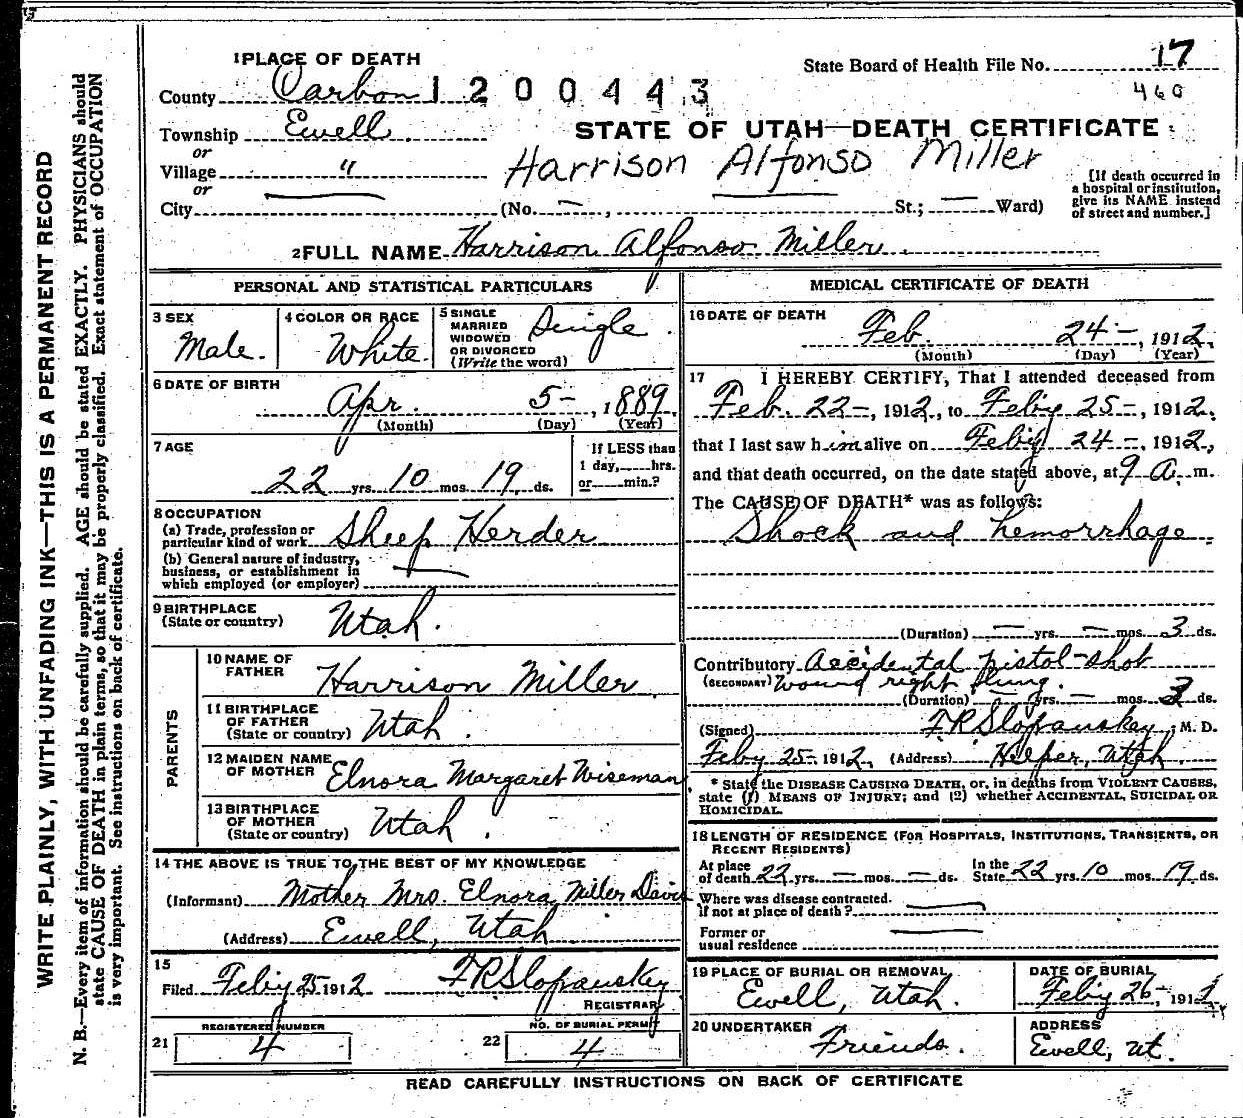 17
State Board of Health File No.
460
1 PLACE OF DEATH
County Carbon 1200443
Township Ewell.
or
Village "
or
City (No. — , St.; — Ward)
STATE OF UTAH—DEATH CERTIFICATE
Harrison Alfonso Miller
[If death occurred in
a hospital or institution,
give its NAME instead
of street and number.]
2 FULL NAME Harrison Alfonso Miller.
PERSONAL AND STATISTICAL PARTICULARS
3 SEX
Male.
4 COLOR OR RACE
White.
5 SINGLE
MARRIED
WIDOWED
OR DIVORCED
(Write the word)
Single.
6 DATE OF BIRTH
Apr. 5-, 1889.
(Month) (Day) (Year)
7 AGE
22 yrs. 10 mos. 19. ds.
If LESS than
1 day, hrs.
or min.?
8 OCCUPATION
(a) Trade, profession or
particular kind of work Sheep Herder
(b) General nature of industry,
business, or establishment in
which employed (or employer)
9 BIRTHPLACE
(State or country) Utah.
PARENTS
10 NAME OF
FATHER Harrison Miller.
11 BIRTHPLACE
OF FATHER
(State or country) Utah.
12 MAIDEN NAME
OF MOTHER Elnora Margaret Wiseman
13 BIRTHPLACE
OF MOTHER
(State or country) Utah.
14 THE ABOVE IS TRUE TO THE BEST OF MY KNOWLEDGE
(Informant) Mother Mrs. Elnora Miller Davis
(Address) Ewell, Utah.
15
Filed Feby 25 1912 F R Slopansky
REGISTRAR
REGISTERED NUMBER
21 4
NO. OF BURIAL PERMIT
22 4
MEDICAL CERTIFICATE OF DEATH
16 DATE OF DEATH
Feb. 24-, 1912.
(Month) (Day) (Year)
17 I HEREBY CERTIFY, That I attended deceased from
Feb. 22-, 1912, to Feby 25-, 1912,
that I last saw him alive on Feby 24-, 1912,
and that death occurred, on the date stated above, at 9 a. m.
The CAUSE OF DEATH* was as follows:
Shock and hemorrhage.
(Duration) — yrs. — mos. 3 ds.
Contributory Accidental pistol-shot
(SECONDARY) wound right lung.
(Duration) — yrs. — mos. 3 ds.
(Signed) F R Slopansky, M. D.
Feby 25- 1912. (Address) Helper, Utah.
* State the DISEASE CAUSING DEATH, or, in deaths from VIOLENT CAUSES,
state (1) MEANS OF INJURY; and (2) whether ACCIDENTAL, SUICIDAL OR
HOMICIDAL.
18 LENGTH OF RESIDENCE (FOR HOSPITALS, INSTITUTIONS, TRANSIENTS, OR
RECENT RESIDENTS)
At place
of death 22 yrs. — mos. — ds. In the
State 22 yrs. 10 mos. 19 ds.
Where was disease contracted.
if not at place of death?
Former or
usual residence
19 PLACE OF BURIAL OR REMOVAL
Ewell, Utah.
DATE OF BURIAL
Feby 26-, 1912
20 UNDERTAKER
Friends.
ADDRESS
Ewell, Ut.
READ CAREFULLY INSTRUCTIONS ON BACK OF CERTIFICATE
WRITE PLAINLY, WITH UNFADING INK—THIS IS A PERMANENT RECORD
N. B.—Every item of information should be carefully supplied. AGE should be stated EXACTLY. PHYSICIANS should
state CAUSE OF DEATH in plain terms, so that it may be properly classified. Exact statement of OCCUPATION
is very important. See instructions on back of certificate.